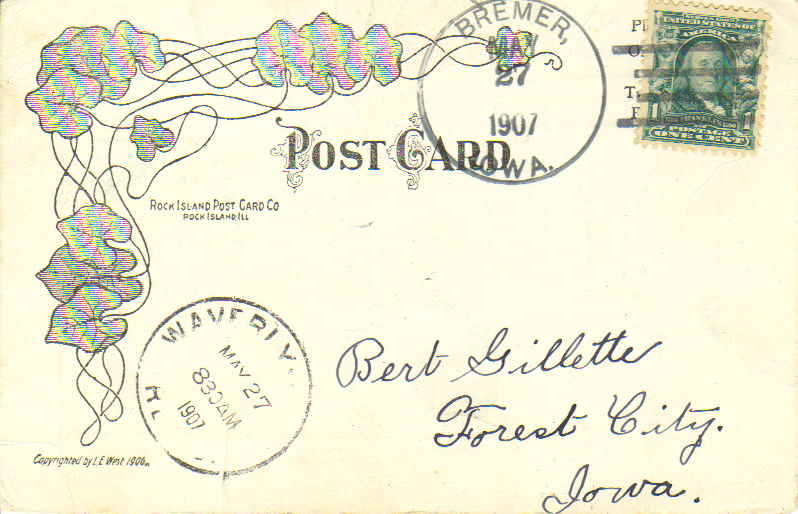 BREMER,
MAY
27
1907
IOWA.
UNITED STATES OF
AMERICA
POSTAGE
ONE CENT
POST CARD
ROCK ISLAND POST CARD CO
ROCK ISLAND ILL
WAVERLY
MAY 27
830AM
1907
Bert Gillette
Forest City.
Iowa.
Copyrighted by L.E West 1906